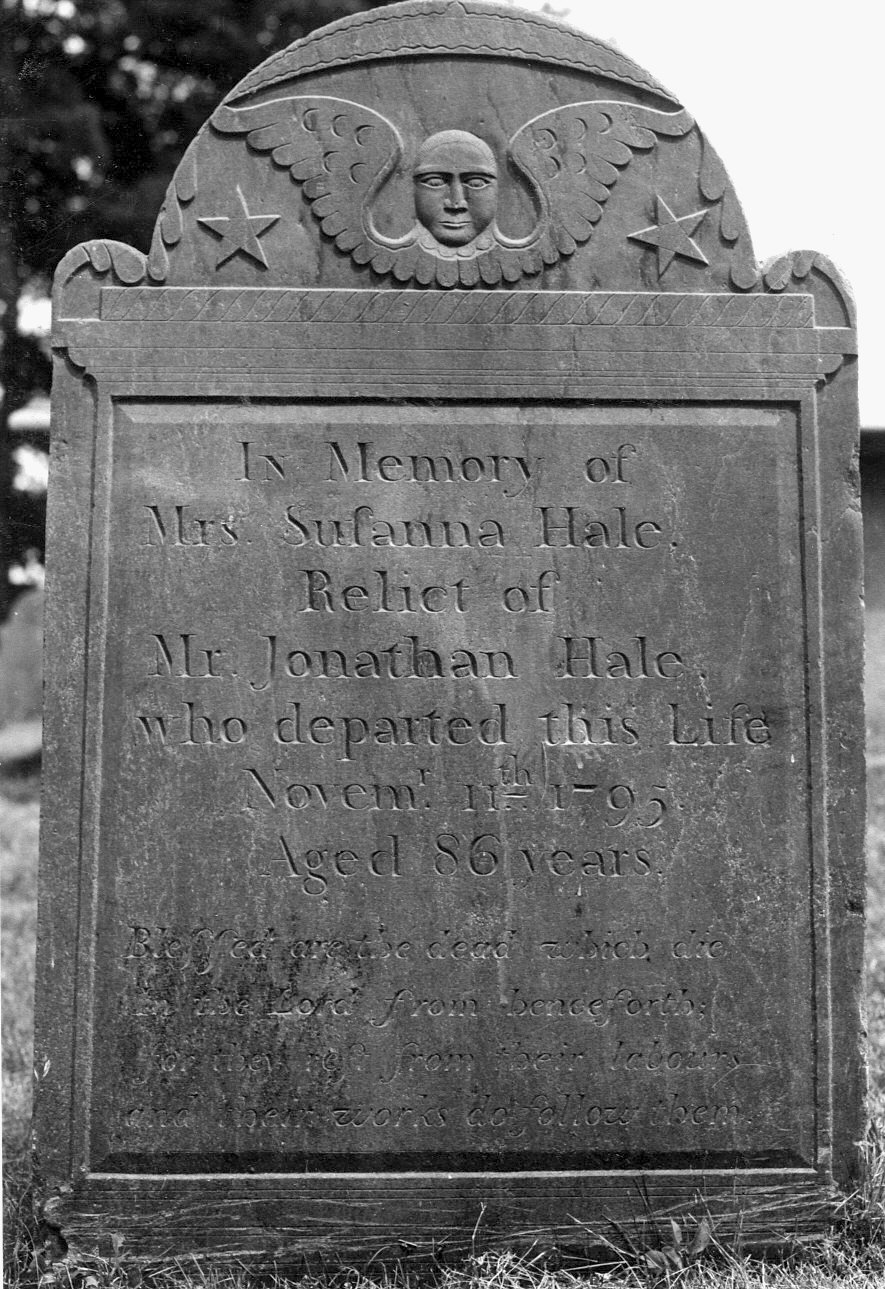 In Memory of
Mrs. Suſanna Hale.
Relict of
Mr. Jonathan Hale,
who departed this Life
Novemr. 11th 1795.
Aged 86 years.
Bleſſed are the dead which die
in the Lord from henceforth;
for they reſt from their labours
and their works do follow them.